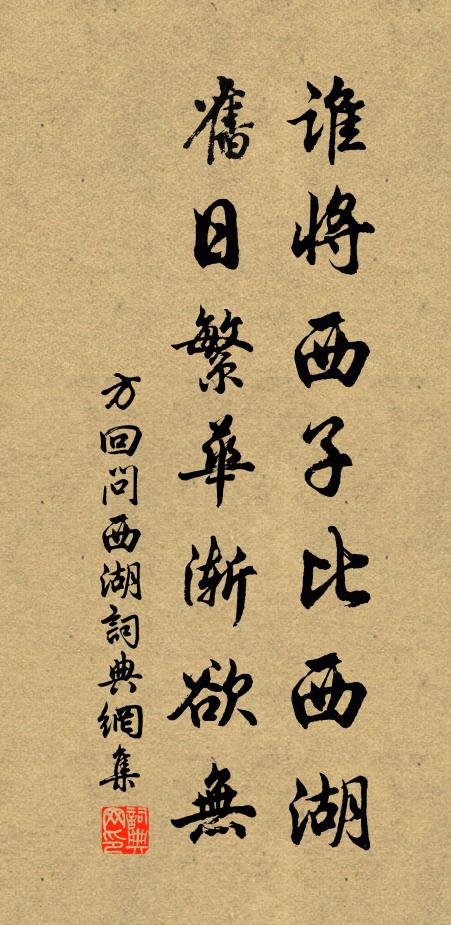 谁將西子比西湖
舊日繁華漸欲無
方回問西湖詞典網集
詞典網印